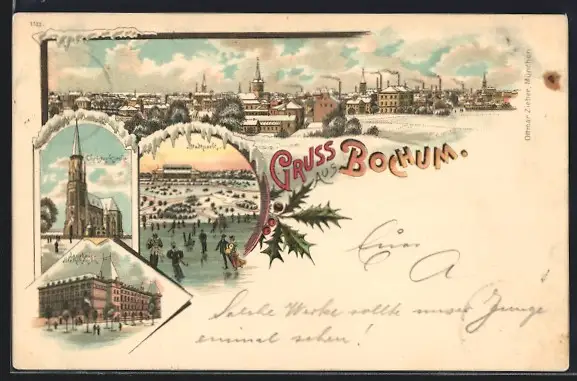 1122.
Stadtpark.
Christuskirche
GRUSS
AUS
BOCHUM.
Ottmar Zieher, München.
Euer
A
Solche Werke sollte unser Junge
einmal sehen!